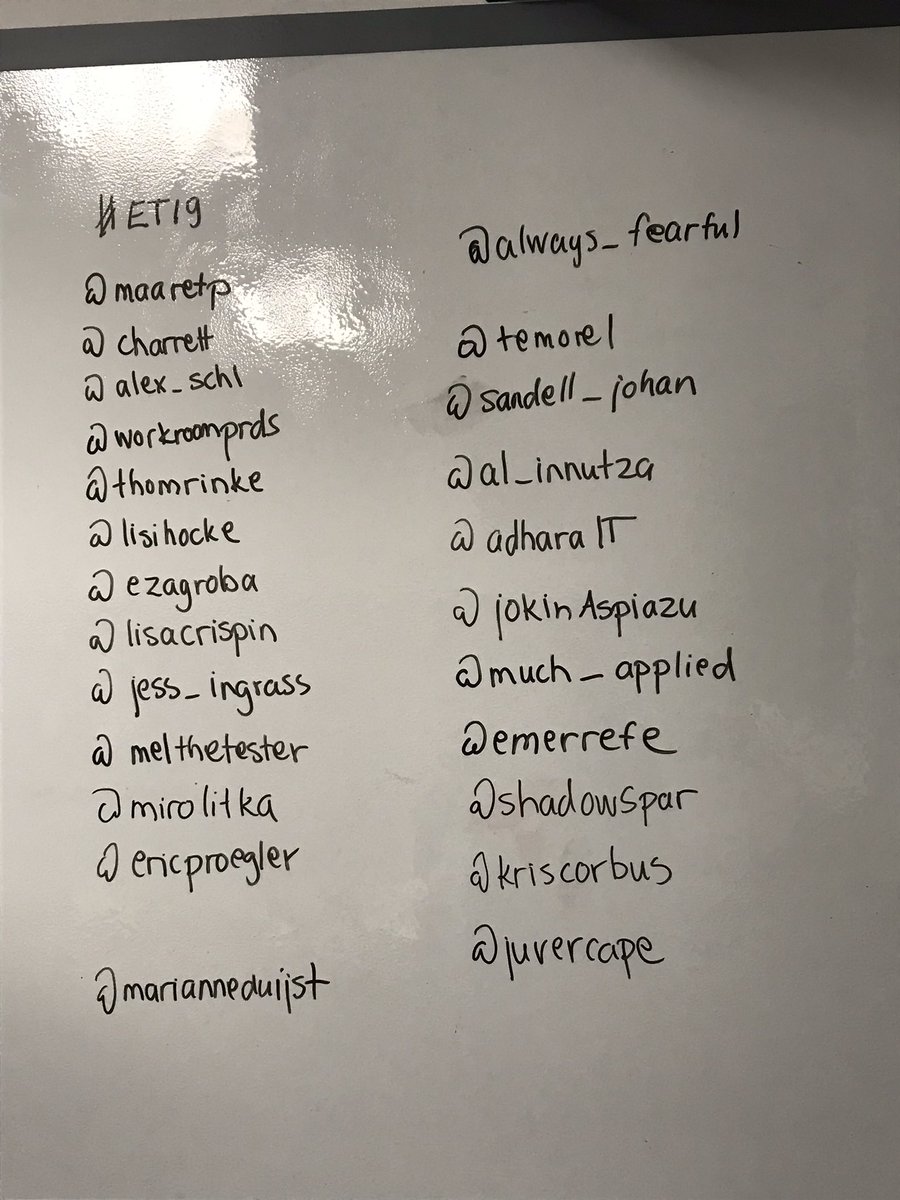 #ET19
@maaretp
@charrett
@alex_schl
@workroomprds
@thomrinke
@lisihocke
@ezagroba
@lisacrispin
@jess_ingrass
@melthetester
@mirolitka
@ericproegler
@marianneduijst
@always_fearful
@temorel
@sandell_johan
@al_innutza
@adharaIT
@jokinAspiazu
@much_applied
@emerrefe
@shadowspar
@kriscorbus
@juvercape